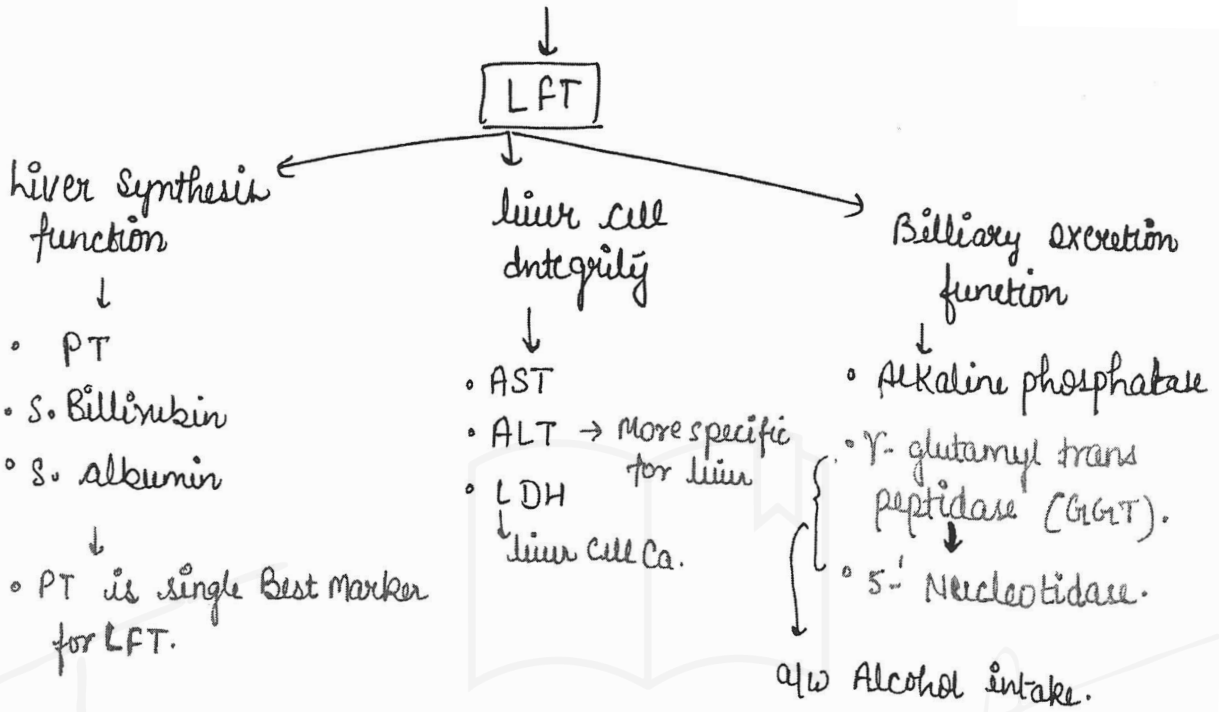 LFT
Liver Synthesis
function
PT
S. Billirubin
S. albumin
PT is single Best Marker
for LFT.
liver cell
Integrity
AST
ALT → More specific
for liver
LDH
liver Cell Ca.
Billiary excretion
function
Alkaline phosphatase
γ- glutamyl trans
peptidase (GGT).
5-' Nucleotidase.
a/w Alcohol intake.